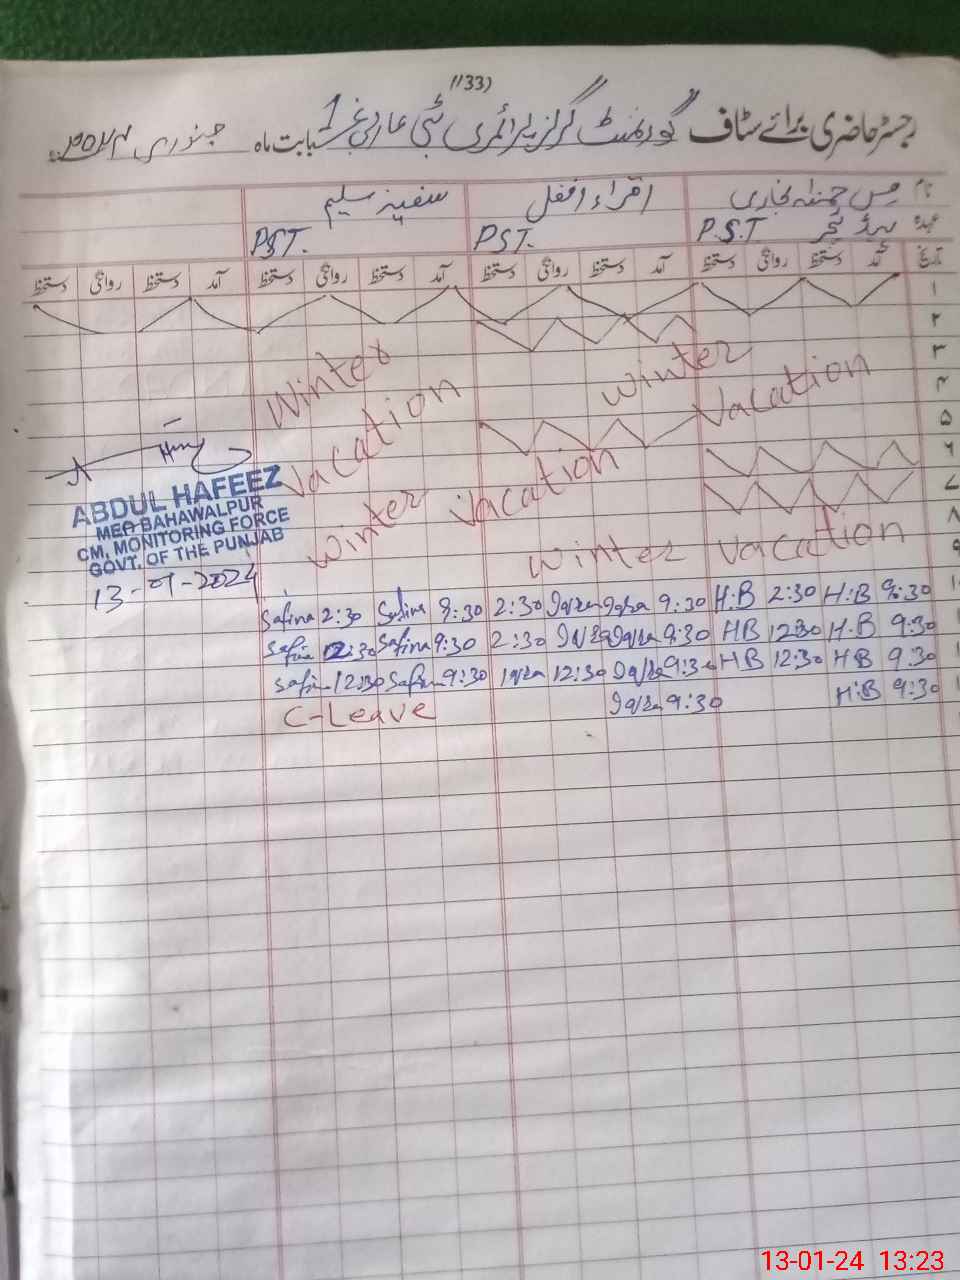 (133)
رجسٹر حاضری برائے سٹاف گورنمنٹ گرلز پرائمری بابت ماہ جنوری ۲۰۲۴ء
نام مس بخاری اقراء افضل سفینہ سلیم
عہدہ ہیڈ ٹیچر P.S.T PST. PST.
تاریخ آمد دستخط روانگی دستخط آمد دستخط روانگی دستخط آمد دستخط روانگی دستخط آمد دستخط روانگی دستخط
۱
۲
۳
۴
۵
۶
۷
۸
۹
Winter Vacation
Winter Vacation
Winter Vacation
Winter Vacation
ABDUL HAFEEZ
MEA BAHAWALPUR
CM, MONITORING FORCE
GOVT. OF THE PUNJAB
13-01-2024
Safina 2:30 Safina 9:30 2:30 Iqra Iqra 9:30 H.B 2:30 H.B 9:30
Safina 12:30 Safina 9:30 2:30 Iqra Iqra 9:30 HB 12:30 H.B 9:30
Safina 12:30 Safina 9:30 Iqra 12:30 Iqra 9:30 HB 12:30 HB 9:30
C-Leave Iqra 9:30 H.B 9:30
13-01-24 13:23